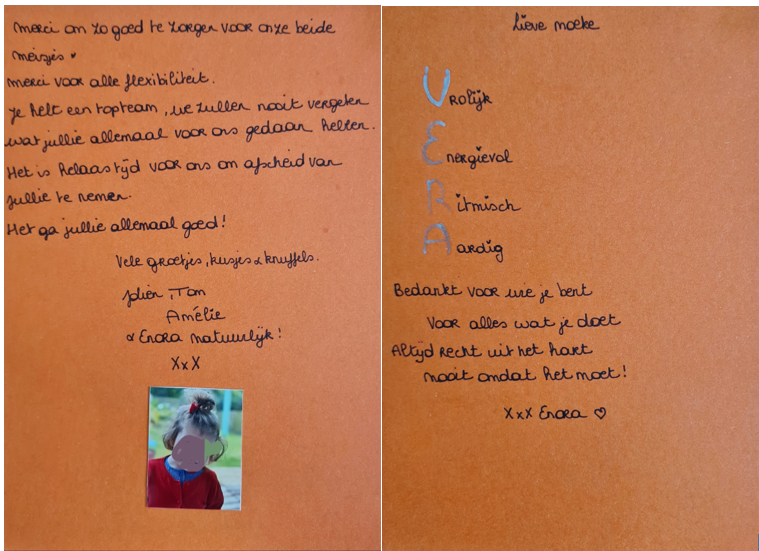 merci om zo goed te zorgen voor onze beide
meisjes ♥
merci voor alle flexibiliteit.
Je hebt een topteam, we zullen nooit vergeten
wat jullie allemaal voor ons gedaan hebben.
Het is helaas tijd voor ons om afscheid van
jullie te nemen.
Het ga jullie allemaal goed!
Vele groetjes, kusjes & knuffels.
Jolien, Tom
Amélie
& Enora natuurlijk!
XxX
Lieve moeke
VRolijk
Energievol
Ritmisch
Aardig
Bedankt voor wie je bent
Voor alles wat je doet
Altijd recht uit het hart
nooit omdat het moet!
XxX Enora ♡